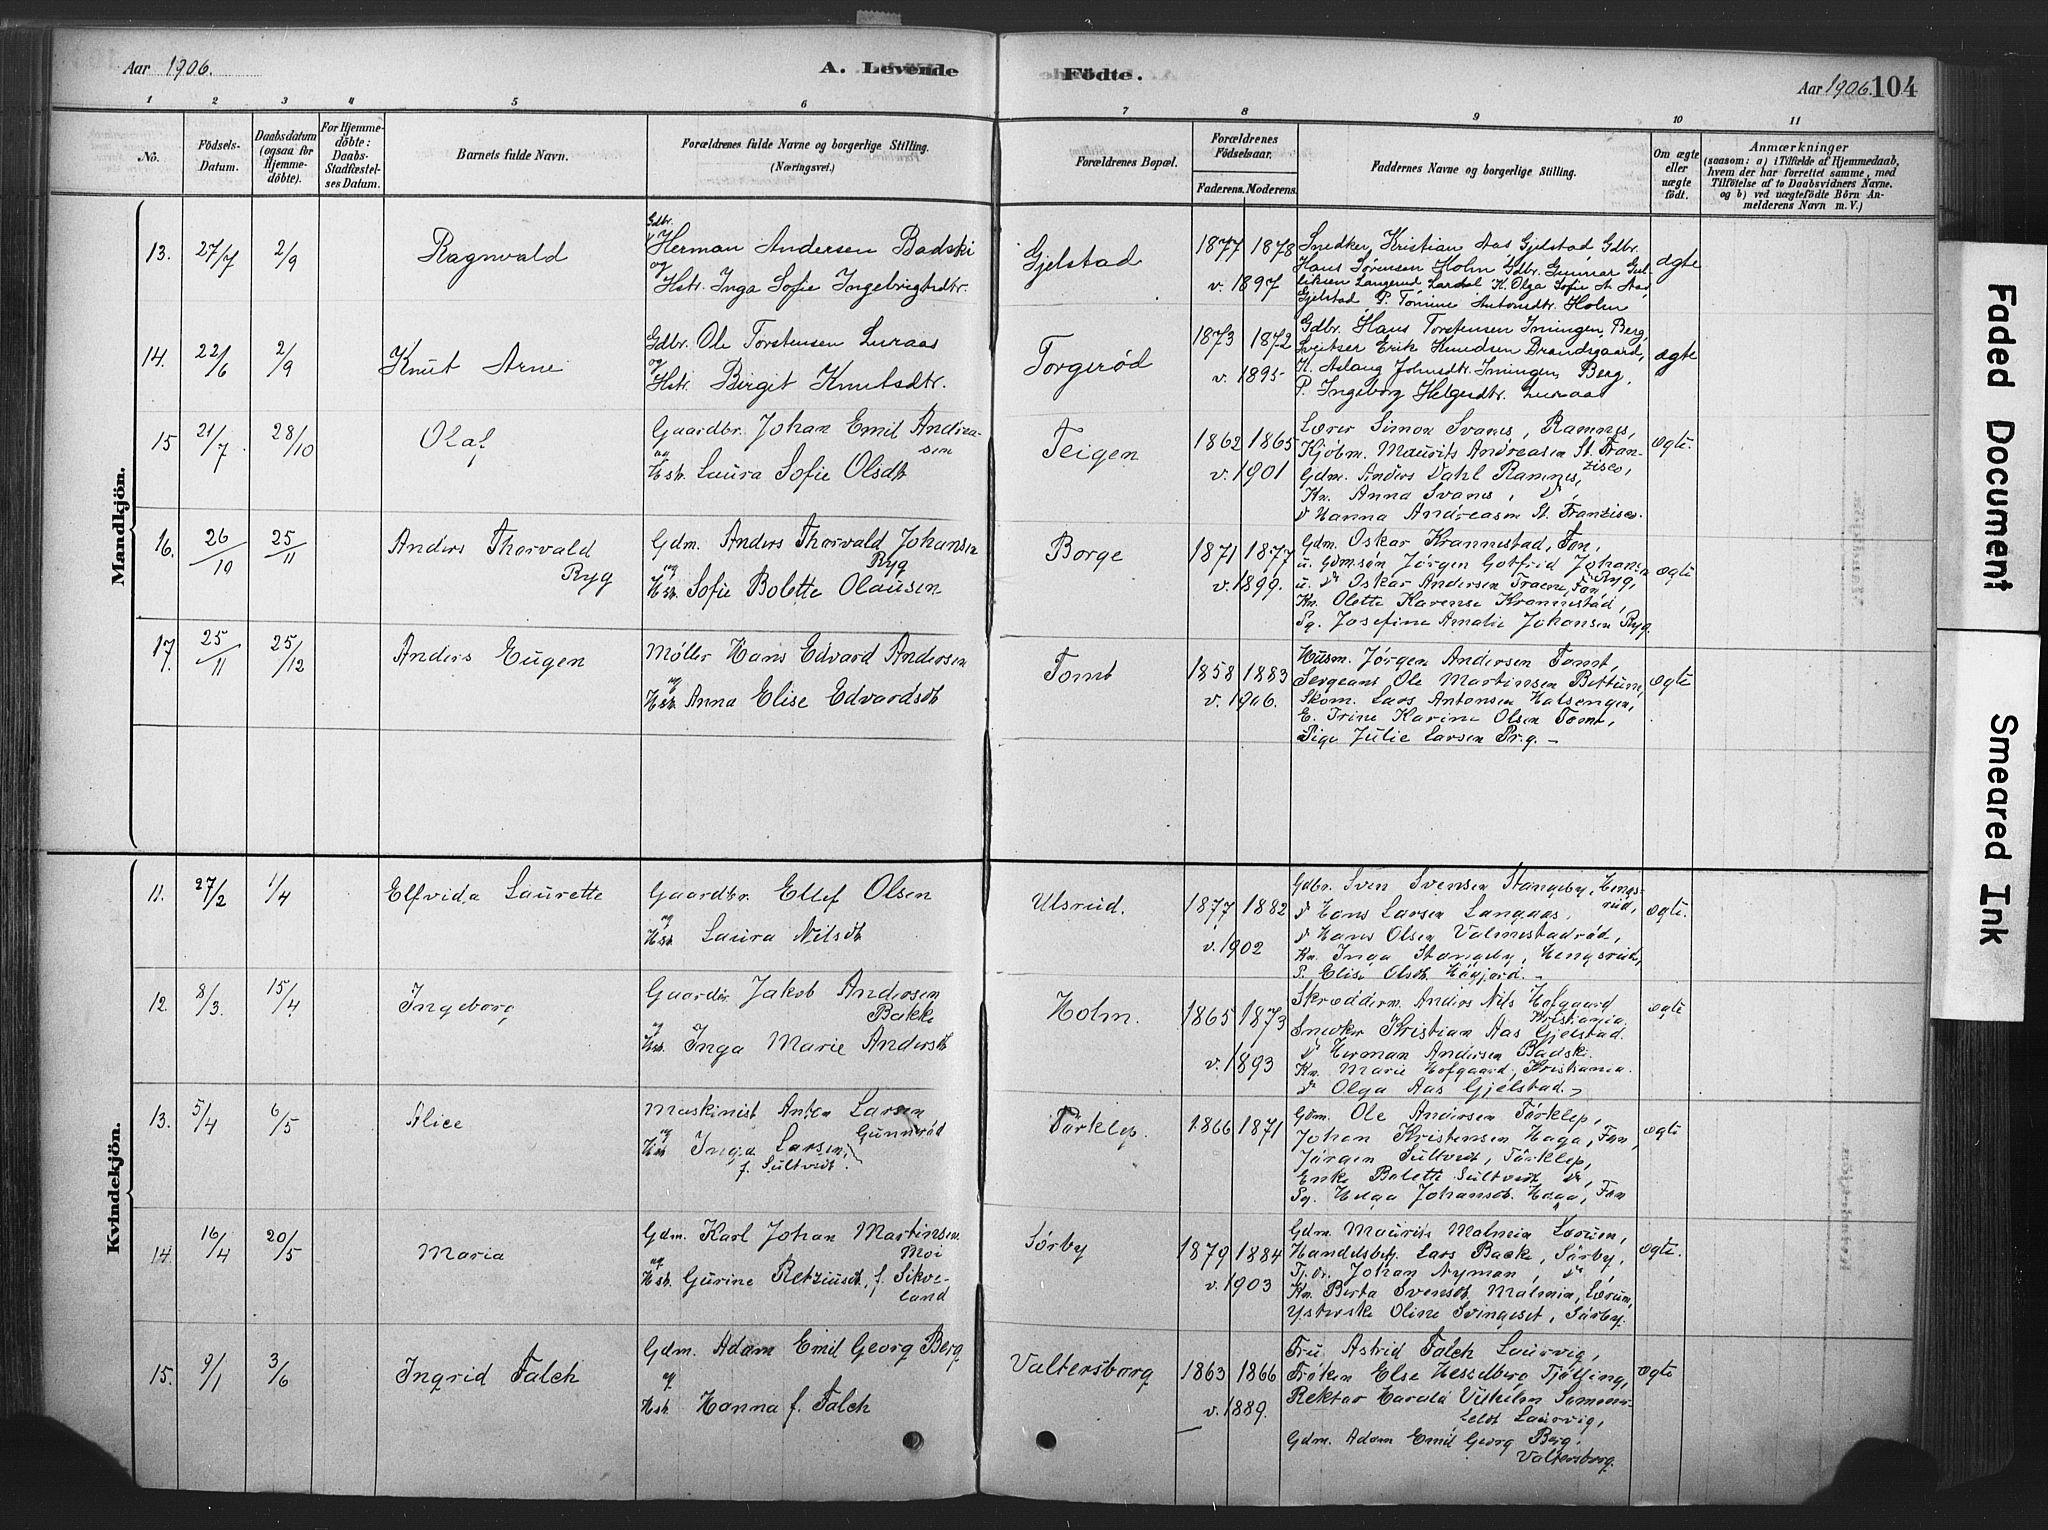 Aar 1906.
A. Levende
Födte.
Aar 1906. 104
1 2 3 4 5 6 7 8 9 10 11
No.
Födsels-Datum.
Daabsdatum (ogsaa for Hjemme-döbte).
For Hjemme-döbte: Daabs-Stadfæstel-ses Datum.
Barnets fulde Navn.
Forældrenes fulde Navne og borgerlige Stilling. (Næringsvei.)
Forældrenes Bopæl.
Forældrenes Födselsaar.
Faderens. Moderens.
Faddernes Navne og borgerlige Stilling.
Om ægte eller uægte födt.
Anmærkninger
(saasom: a) i Tilfælde af Hjemmedaab, hvem der har forrettet samme, med Tilföielse af to Daabsvidners Navne. og b) ved uægtefödte Börn An-melderens Navn m. V.)
Mandkjön.
13. 27/7 2/9 Ragnvald
Gdbr. Herman Andersen Badski
og Hstr. Inga Sofie Ingebrigtsdtr.
Gjelstad 1877 1878 v. 1897
Snedker Kristian Aas Gjelstad Gdbr.
Hans Sørensen Holm Gdbr. Gunnar Gul-
liksen Langerud Lardal K. Olga Sofie A. Aas
Gjelstad P. Tomine Antonsdtr. Holm
ægte
14. 22/6 2/9 Knut Arne
Gdbr. Ole Torstensen Luraas
og Hstr. Birgit Knutsdtr.
Torgerød 1873 1872 v. 1895
Gdbr. Hans Torstensen Imingen, Berg,
Sveitser Erik Knudsen Brandsgaard,
K. Aslaug Johnsdtr. Imingen, Berg,
P. Ingeborg Helgesdtr. Luraas
ægte
15 21/7 28/10 Olaf
Gaardbr. Johan Emil Andrea-
sen
og Hstr. Laura Sofie Olsdt
Teigen 1862 1865 v. 1901
Lærer Simon Svanes, Ramnes,
Kjöbm. Maurits Andreasen St. Fran-
zisco,
Gdm. Anders Dahl Ramnes,
Kn. Anna Svanes, do,
do Hanna Andreasen St. Franzisco.
ægte.
16. 26/10 25/11 Anders Thorvald
Ryg
Gdm. Anders Thorvald Johansen
Ryg
og Hstr. Sofie Bolette Olausen
Borge 1871 1877 v. 1899.
Gdm. Oskar Krannestad, Fon,
u. Gdm.søn Jörgen Gotfrid Johansen
Ryg,
u. do Oskar Andersen Traene, Fon
Kn. Olette Karense Krannestad,
Pg. Josefine Amalie Johansen Ryg.
ægte
17. 25/11 25/12 Anders Eugen
Møller Hans Edvard Andersen
og Hstr. Anna Elise Edvardsdt
Tomt 1858 1883 v. 1906.
Husm. Jörgen Andersen Tomt,
Sergeant Ole Martinsen Bettum,
Skom. Lars Antonsen Halsengen,
E. Trine Karine Olsen Tomt,
Pige Julie Larsen Pr.g. -
ægte
Kvindekjön.
11. 27/2 1/4 Elfvida Laurette
Gaardbr. Ellef Olsen
og Hstr. Laura Nilsdt
Ulsrud. 1877 1882 v. 1902
Gdbr. Sven Svensen Stangeby, Hengs-
rud,
do Hans Larsen Langaas,
do Hans Olsen Valmestadröd,
Kn. Inga Stangeby, Hengsrud,
P. Elise Olsdt. Høgjord. -
ægte.
12. 8/3 15/4 Ingeborg
Gaardbr. Jakob Andersen
Bakke
og Hstr. Inga Marie Andersdt
Holm. 1865 1873 v. 1893
Skrædderm. Anders Nils Hofgaard
Kristiania.
Snedker Kristian Aas Gjelstad.
do Herman Andersen Badski.
Kn. Marie Hofgaard, Kristiania.
do Olga Aas Gjelstad. -
ægte
13. 5/4 6/5 Alice
Maskinist Anton Larsen
Gunneröd
og Hstr. Inga Larsen,
f. Sultvedt.
Tärklep. 1866 1871
Gdm. Ole Andersen Tärklep,
Johan Kristensen Haga, Fon,
Jörgen Sultvedt, Tärklep,
Enke Bolette Sultvedt do,
Pg. Helga Johansdt. Haga, Fon
ægte
14. 16/4 20/5 Maria
Gdm. Karl Johan Martinsen
Moi
og Hstr. Gurine Retziusdt. f. Sikve-
land
Sörby 1879 1884 v. 1903
Gdm. Maurits Malmin Lørum,
Handelsbetj. Lars Backe, Sörby,
Tj.dr. Johan Nyman, do,
Kn. Berta Svensdt. Malmin, Lørum,
Ysterske Oline Svingeset, Sörby.
ægte.
15. 9/1 3/6 Ingrid Falch
Gdm. Adam Emil Georg Berg
og Hstr. Hanna f. Falch
Valtersborg 1863 1866 v. 1889.
Fru Astrid Falch Laurvig,
Fröken Else Hesselberg Tjölling,
Rektor Harald Vilhelm Sommer-
feldt Laurvig,
Gdm. Adam Emil Georg Berg,
Valtersborg.
ægte
Faded Document
Smeared Ink